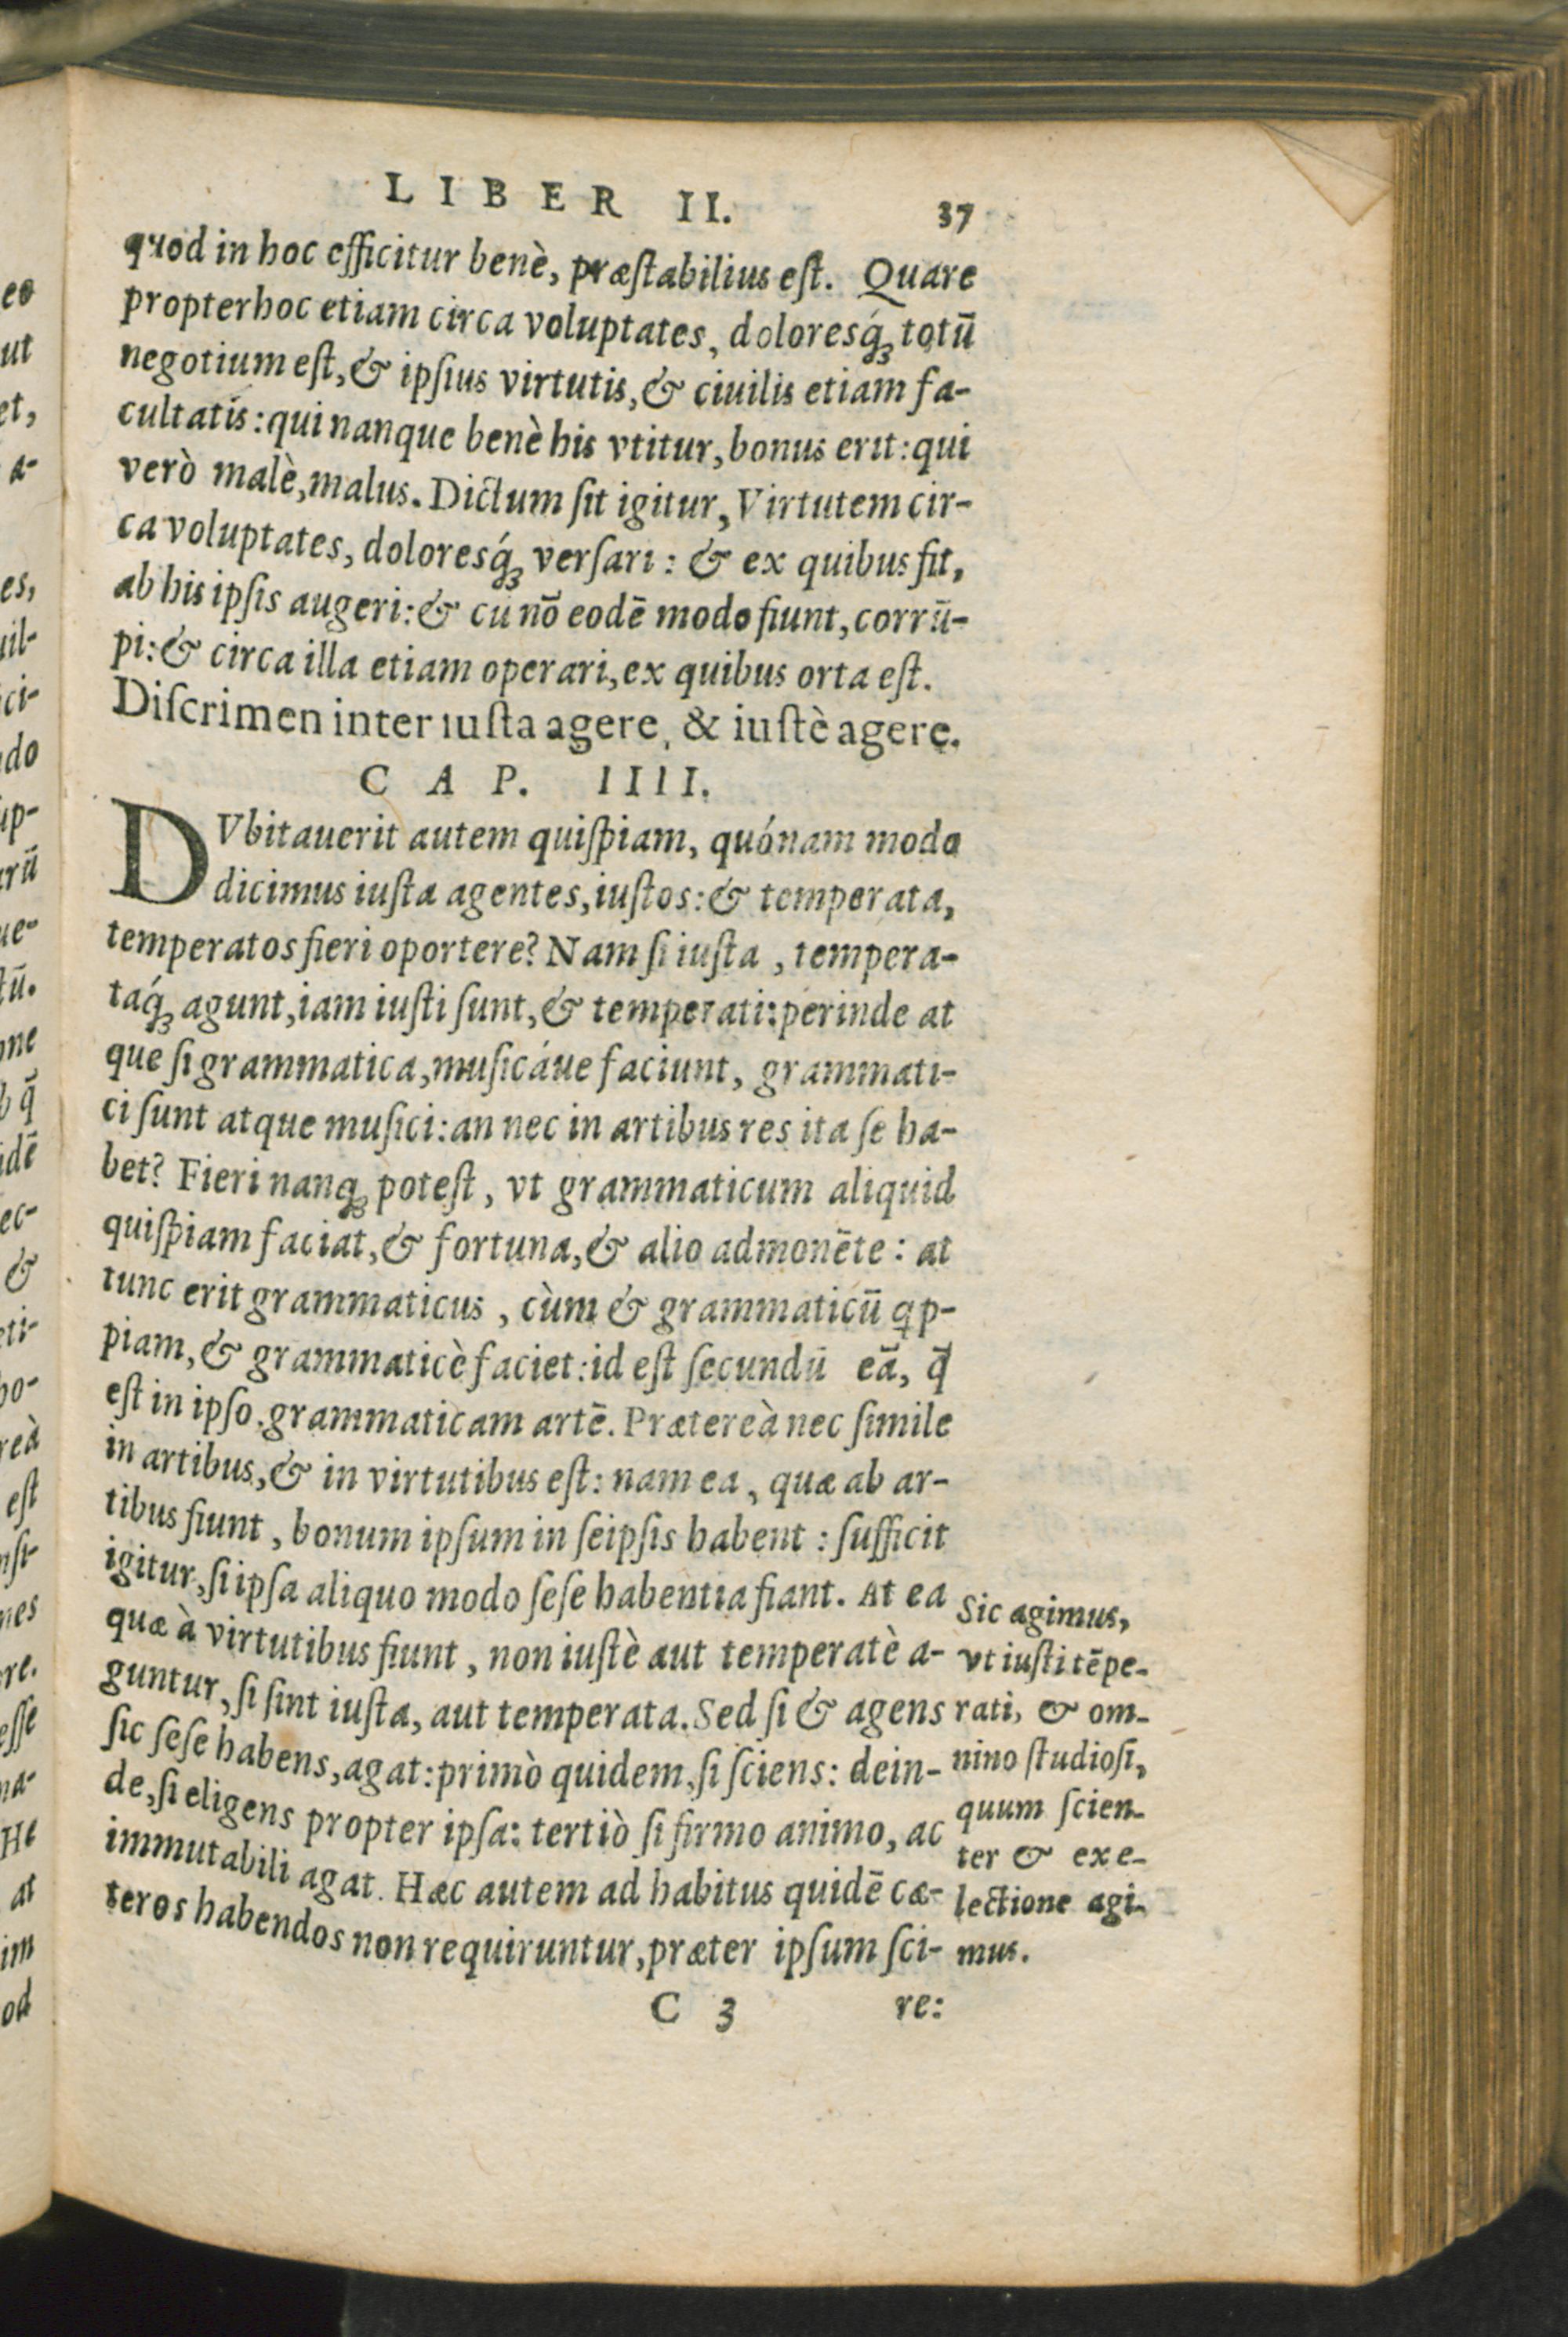 LIBER II. 37
quod in hoc efficitur benè, præſtabilius eſt. Quare
propter hoc etiam circa voluptates, doloresq́ꝫ totū
negotium eſt, & ipſius virtutis, & ciuilis etiam fa-
cultatis: qui nanque benè his vtitur, bonus erit: qui
verò malè, malus. Dictum ſit igitur, Virtutem cir-
ca voluptates, doloresq́ꝫ verſari: & ex quibus fit,
ab his ipſis augeri: & cū nō eodē modo fiunt, corrū-
pi: & circa illa etiam operari, ex quibus orta eſt.
Diſcrimen inter iuſta agere, & iuſtè agere.
CAP. IIII.
DVbitauerit autem quiſpiam, quónam modo
dicimus iuſta agentes, iuſtos: & temperata,
temperatos fieri oportere? Nam ſi iuſta, tempera-
taq́ꝫ agunt, iam iuſti ſunt, & temperati: perinde at
que ſi grammatica, muſicáue faciunt, grammati-
ci ſunt atque muſici: an nec in artibus res ita ſe ha-
bet? Fieri nanqꝫ poteſt, vt grammaticum aliquid
quiſpiam faciat, & fortuna, & alio admonēte: at
tunc erit grammaticus, cùm & grammaticū qp-
piam, & grammaticè faciet: id eſt ſecundū eā, q̄
eſt in ipſo, grammaticam artē. Prætereà nec ſimile
in artibus, & in virtutibus eſt: nam ea, quæ ab ar-
tibus fiunt, bonum ipſum in ſeipſis habent: ſufficit
igitur, ſi ipſa aliquo modo ſeſe habentia fiant. At ea
quæ à virtutibus fiunt, non iuſtè aut temperatè a-
guntur, ſi ſint iuſta, aut temperata. Sed ſi & agens
ſic ſeſe habens, agat: primò quidem, ſi ſciens: dein-
de, ſi eligens propter ipſa: tertiò ſi firmo animo, ac
immutabili agat. Hæc autem ad habitus quidē cæ-
teros habendos non requiruntur, præter ipſum ſci-
Sic agimus,
vt iuſti tēpe-
rati, & om-
nino ſtudioſi,
quum ſcien-
ter & exe-
lectione agi-
mus.
C 3 re: